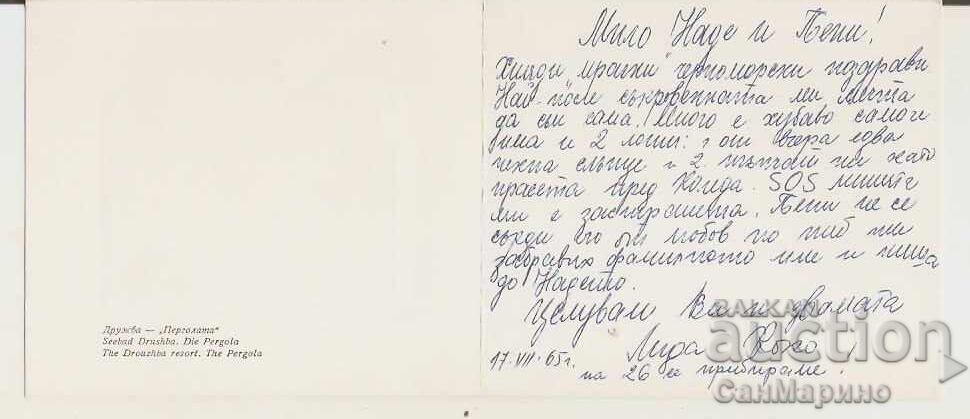 Дружба — „Перголата“
Seebad Drushba. Die Pergola
The Drouzhba resort. The Pergola
Мило Наде и Пени!
Хиляди „мрачни" черноморски поздрави
Най-после съкровенната ми мечта
да съм сама. Много е хубаво само че
има и 2 лоши: 1 от вчера едва
пекна слънце и 2. тъпчат ни като
прасета пред Коледа. SOS линията
ми е застрашена. Пени не се
сърди че от любов по теб ти
забравих фамилното име и пиша
до Надето.
Целувам Ви и двамата
Лида
17.VII.65г.
на 26 се прибираме!
BALKAN
auction
СанМарино